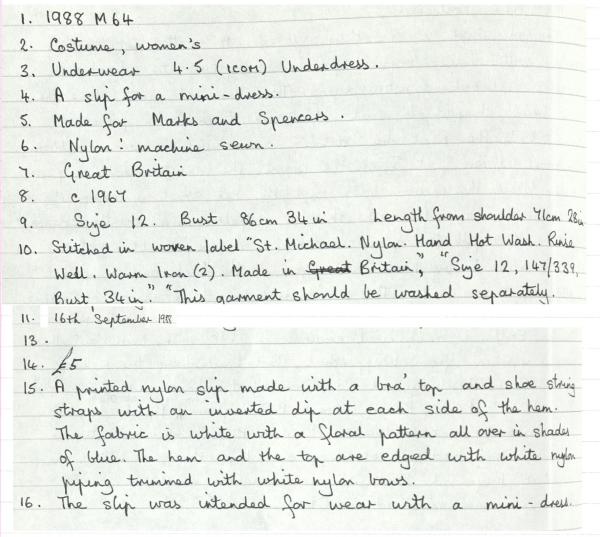 1. 1988 M64
2. Costume, women's
3. Underwear 4.5 (ICOM) Underdress.
4. A slip for a mini-dress.
5. Made for Marks and Spencers.
6. Nylon: machine sewn.
7. Great Britain
8. c 1967
9. Size 12. Bust 86cm 34in Length from shoulder 71cm 28in
10. Stitched in woven label "St. Michael. Nylon. Hand Hot Wash. Rinse
Well. Warm Iron (2). Made in Great Britain", "Size 12, 147/339,
Bust 34in." "This garment should be washed separately.
11. 16th September 1988
13.
14. £5
15. A printed nylon slip made with a 'bra' top and shoe string
straps with an inverted dip at each side of the hem.
The fabric is white with a floral pattern all over in shades
of blue. The hem and the top are edged with white nylon
piping trimmed with white nylon bows.
16. The slip was intended for wear with a mini-dress.